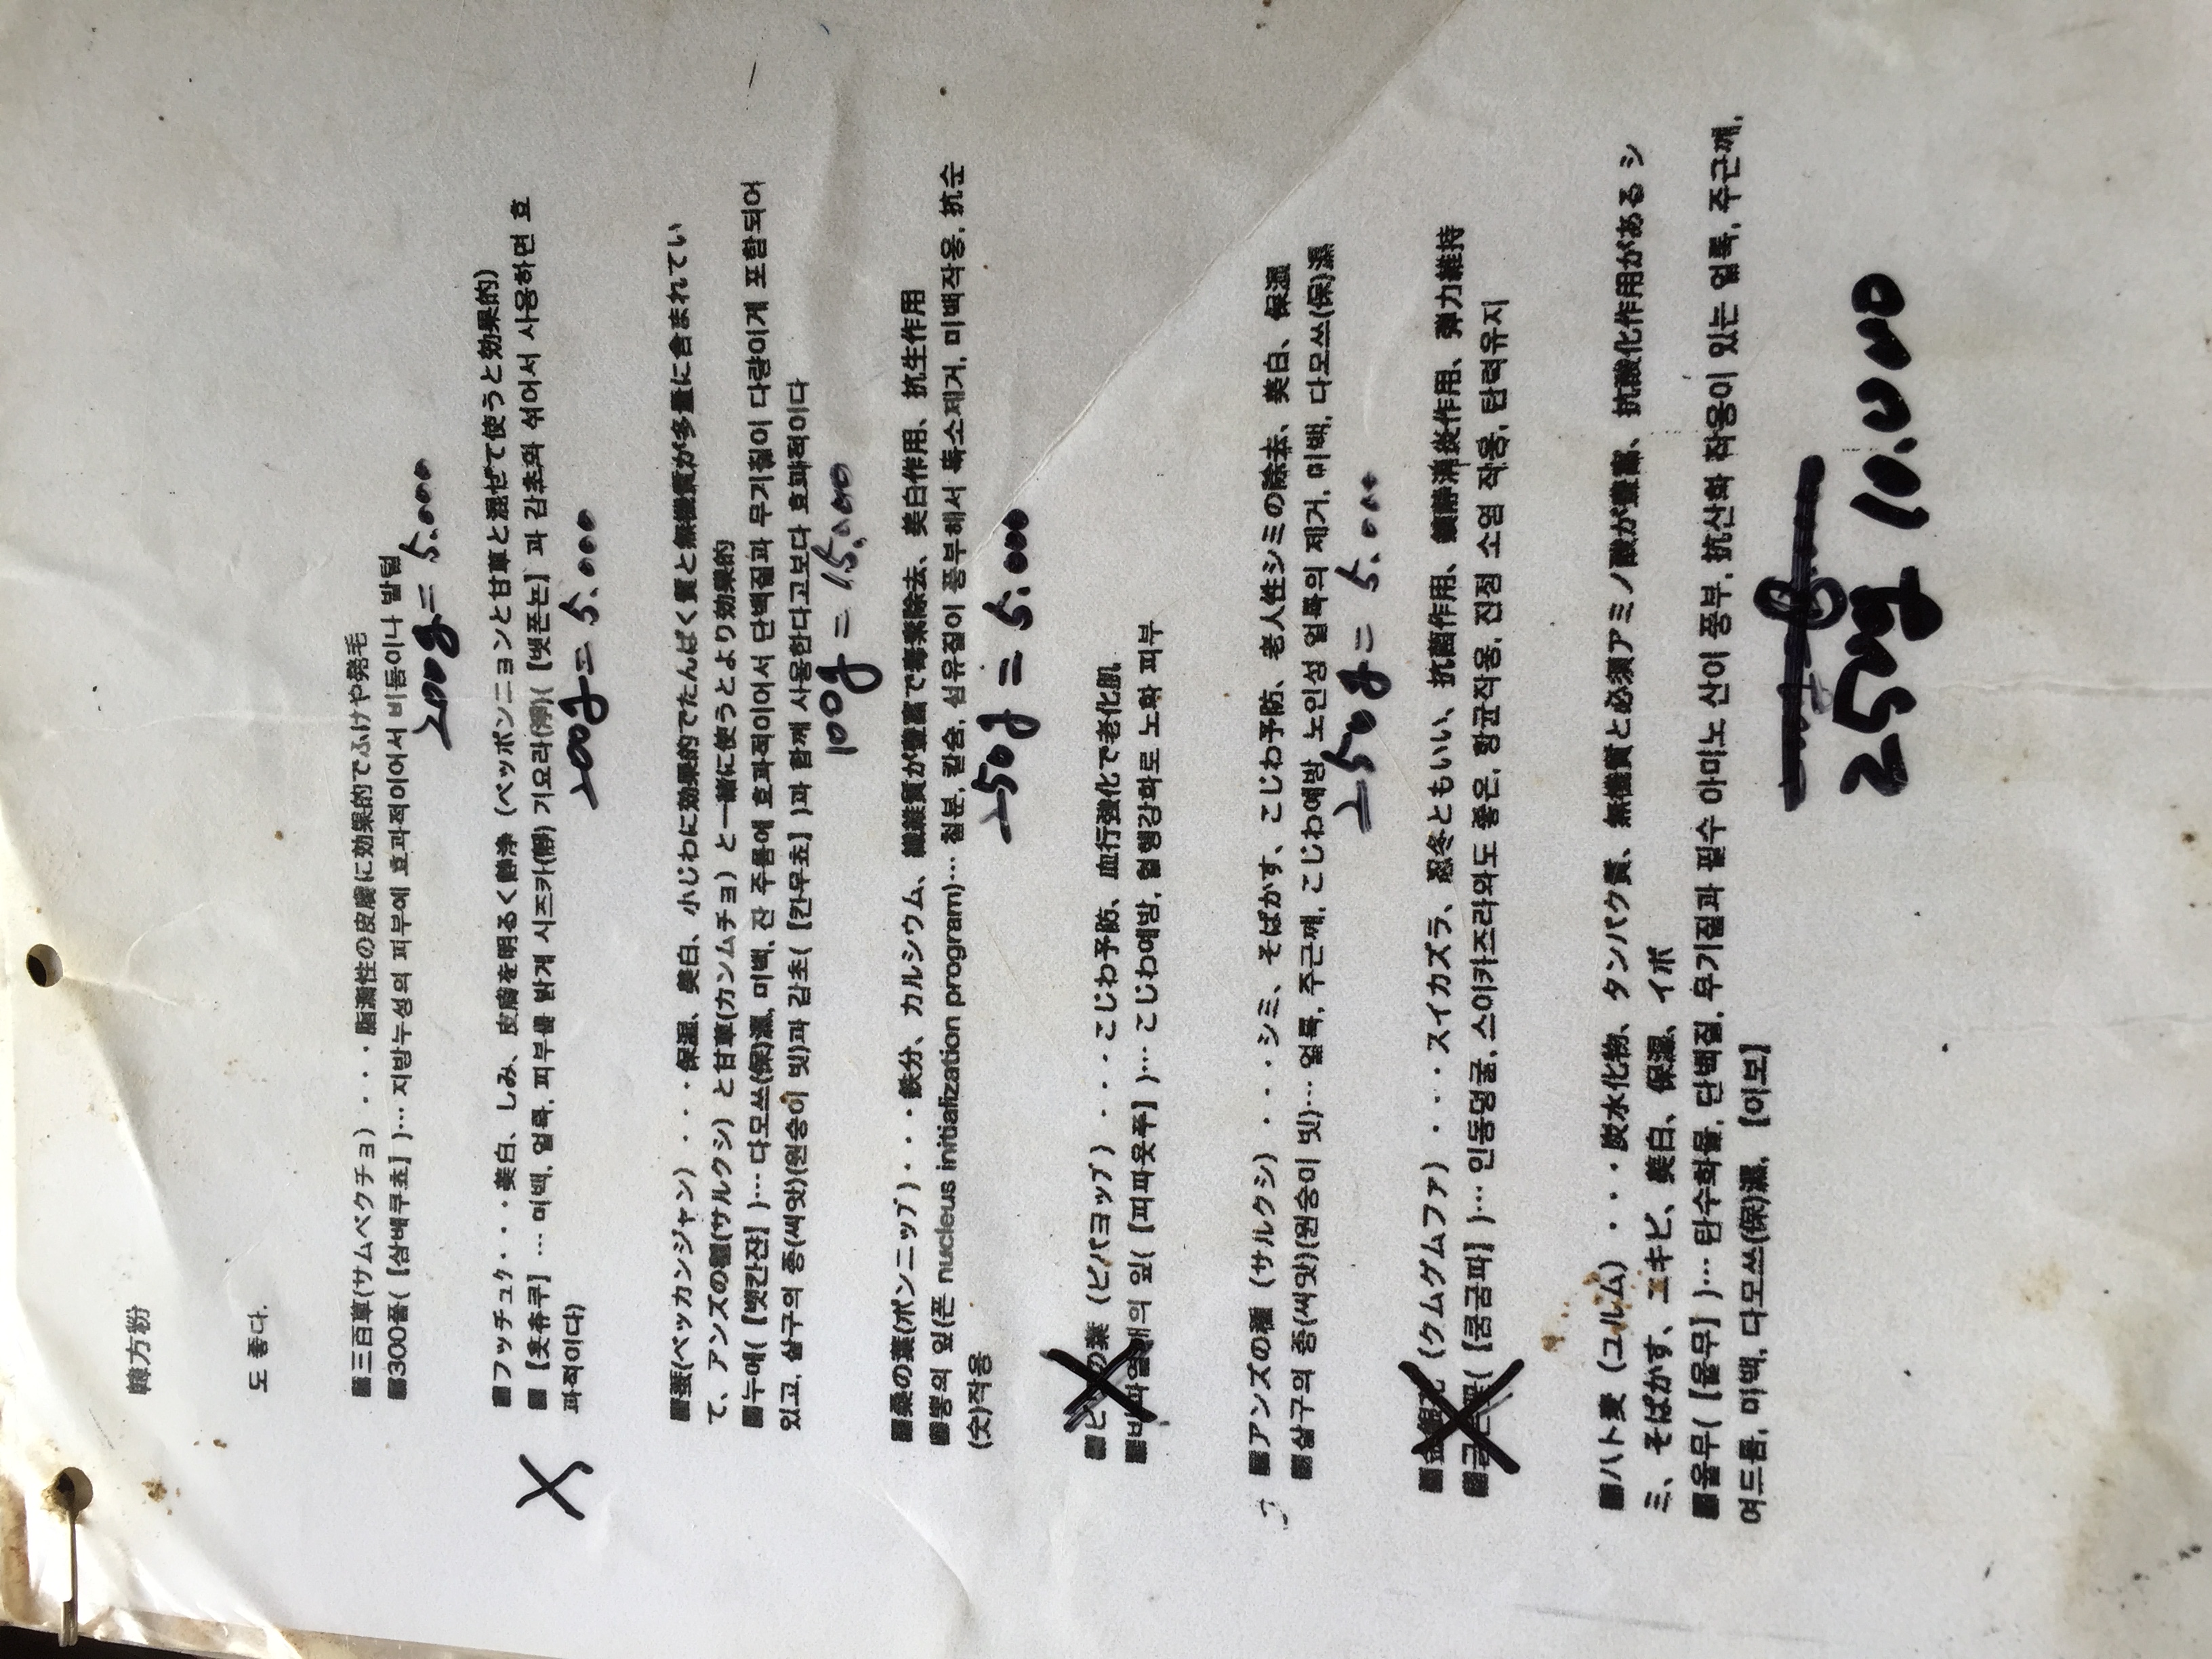 韓方粉
도 좋다.
■三百草(サムベクチョ)・・・脂漏性の皮膚に効果的でふけや発毛
■300풀( [삼배쿠쵸] )… 지방누성의 피부에 효과적이어서 비듬이나 발털
200g = 5.000
■フッチュク・・・美白、しみ、皮膚を明るく静浄 (ベッポンニョンと甘草と混ぜて使うと効果的)
■ [훗츄쿠] … 미백, 얼룩, 피부를 밝게 시즈카(静) 기요라(浄)( [벳폰논] 과 감초와 섞어서 사용하면 효
파적이다)
200g = 5.000
■蚕(ベッカンジャン)・・・保湿、美白、小じわに効果的でたんぱく質と無機質が多量に含まれてい
て、アンズの種(サルクシ)と甘草(カンムチョ)と一緒に使うとより効果的
■누에( [벳칸쟌] )… 다모쓰(保)濕, 미백, 잔 주름에 효과적이어서 단백질과 무기질이 다량이게 포함되어
있고, 살구의 종(씨앗)(원숭이 빗)과 감초( [칸무쵸] )과 함께 사용한다고보다 효과적이다
100g = 15.000
■桑の葉(ポンニップ)・・・鉄分、カルシウム、繊維質が豊富で毒素除去、美白作用、抗生作用
■뽕의 잎(폰 nucleus initialization program)… 철분, 칼슘, 섬유질이 풍부해서 독소제거, 미백작용, 抗순
(숫)작용
250g = 5.000
の葉 (ビパヨップ)・・・こじわ予防、血行強化で老化肌
의 잎( [피파욧푸] )… こじわ예방, 혈행강화로 노화 피부
■アンズの種 (サルクシ)・・・シミ、そばかす、こじわ予防、老人性シミの除去、美白、保湿
■살구의 종(씨앗)(원숭이 빗)… 얼룩, 주근깨, こじわ예방, 노인성 얼룩의 제거, 미백, 다모쓰(保)濕
250g = 5.000
■金銀花 (クムグムファ)・・・スイカズラ、忍冬ともいい、抗菌作用、鎮静消炎作用、弾力維持
( [쿰굼파] )… 인동덩굴, 스이카즈라와도 좋은, 항균작용, 진정 소염 작용, 탄력유지
■ハト麦 (ユルム)・・・炭水化物、タンパク質、無機質と必須アミノ酸が豊富、抗酸化作用があるシ
ミ、そばかす、ニキビ、美白、保湿、イボ
■율무( [율무] )… 탄수화물, 단백질, 무기질과 필수 아미노 산이 풍부, 抗산화 작용이 있는 얼룩, 주근깨,
여드름, 미백, 다모쓰(保)濕, [이보]
250g 10.000